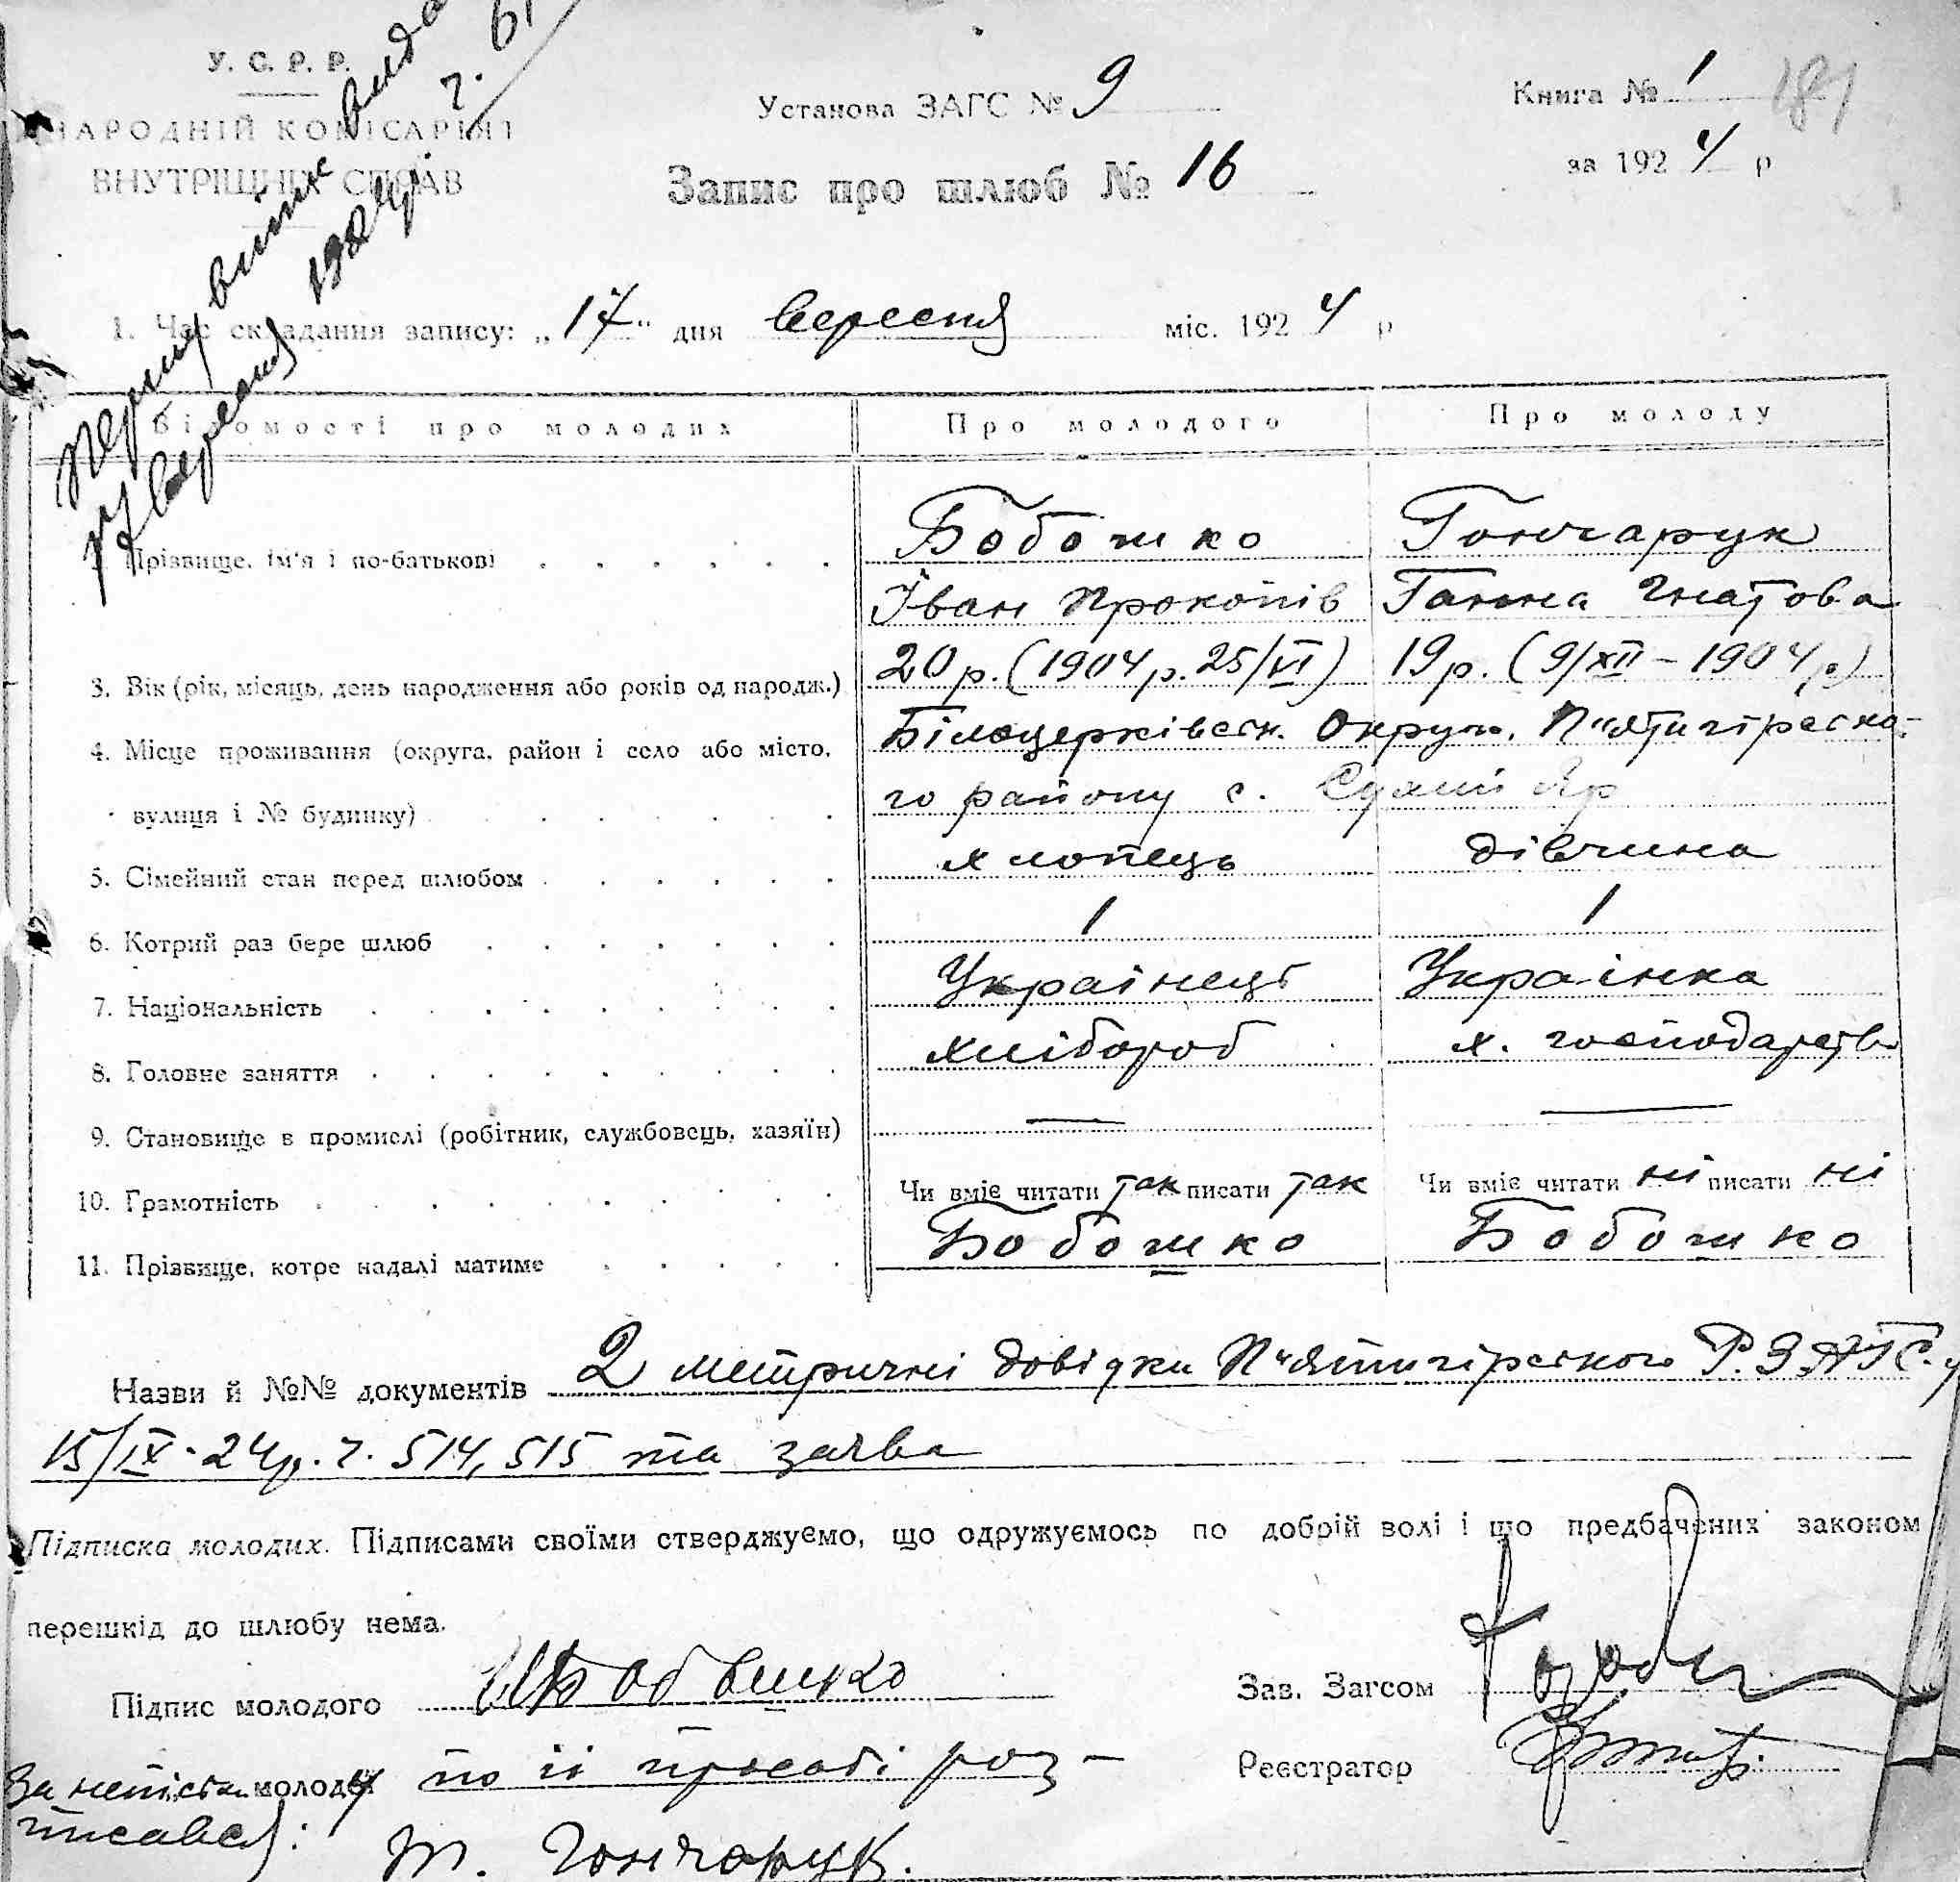 У. С. Р. Р.
НАРОДНІЙ КОМІСАРІЯТ
ВНУТРІШНІХ СПРАВ
Установа ЗАГС № 9
Книга № 1
181
за 1924 р
Запис про шлюб № 16
Першу випис видано
17 вересня 1924 р. ч. 61
1. Час складання запису: „17" дня вересня міс. 1924 р
Відомості про молодих Про молодого Про молоду
2. Прізвище, ім'я і по-батькові Бобошко Гончарук
Іван Прокопів Ганна Гнатова
3. Вік (рік, місяць, день народження або років од народж.) 20 р. (1904 р. 25/VI) 19 р. (9/XII – 1904 р.)
4. Місце проживання (округа, район і село або місто, Білоцерківськ. Округи, П"ятигірсько-
вулиця і № будинку) го району с. Сухий Яр
5. Сімейний стан перед шлюбом хлопець дівчина
6. Котрий раз бере шлюб 1 1
7. Національність Українець Українка
8. Головне заняття хлібороб х. господарств
9. Становище в промислі (робітник, службовець, хазяїн) — —
10. Грамотність Чи вміє читати так писати так Чи вміє читати ні писати ні
11. Прізвище, котре надалі матиме Бобошко Бобошко
Назви й №№ документів 2 метричні довідки П"ятигірського Р.ЗАГС.у
15/IX-24р. ч. 514, 515 та заява
Підписка молодих. Підписами своїми стверджуємо, що одружуємось по добрій волі і що предбачених законом
перешкід до шлюбу нема.
Підпис молодого ИБобошко Зав. Загсом
За неписьм молоду по її просьбі роз- Реєстратор
писався: Т. Гончарук.